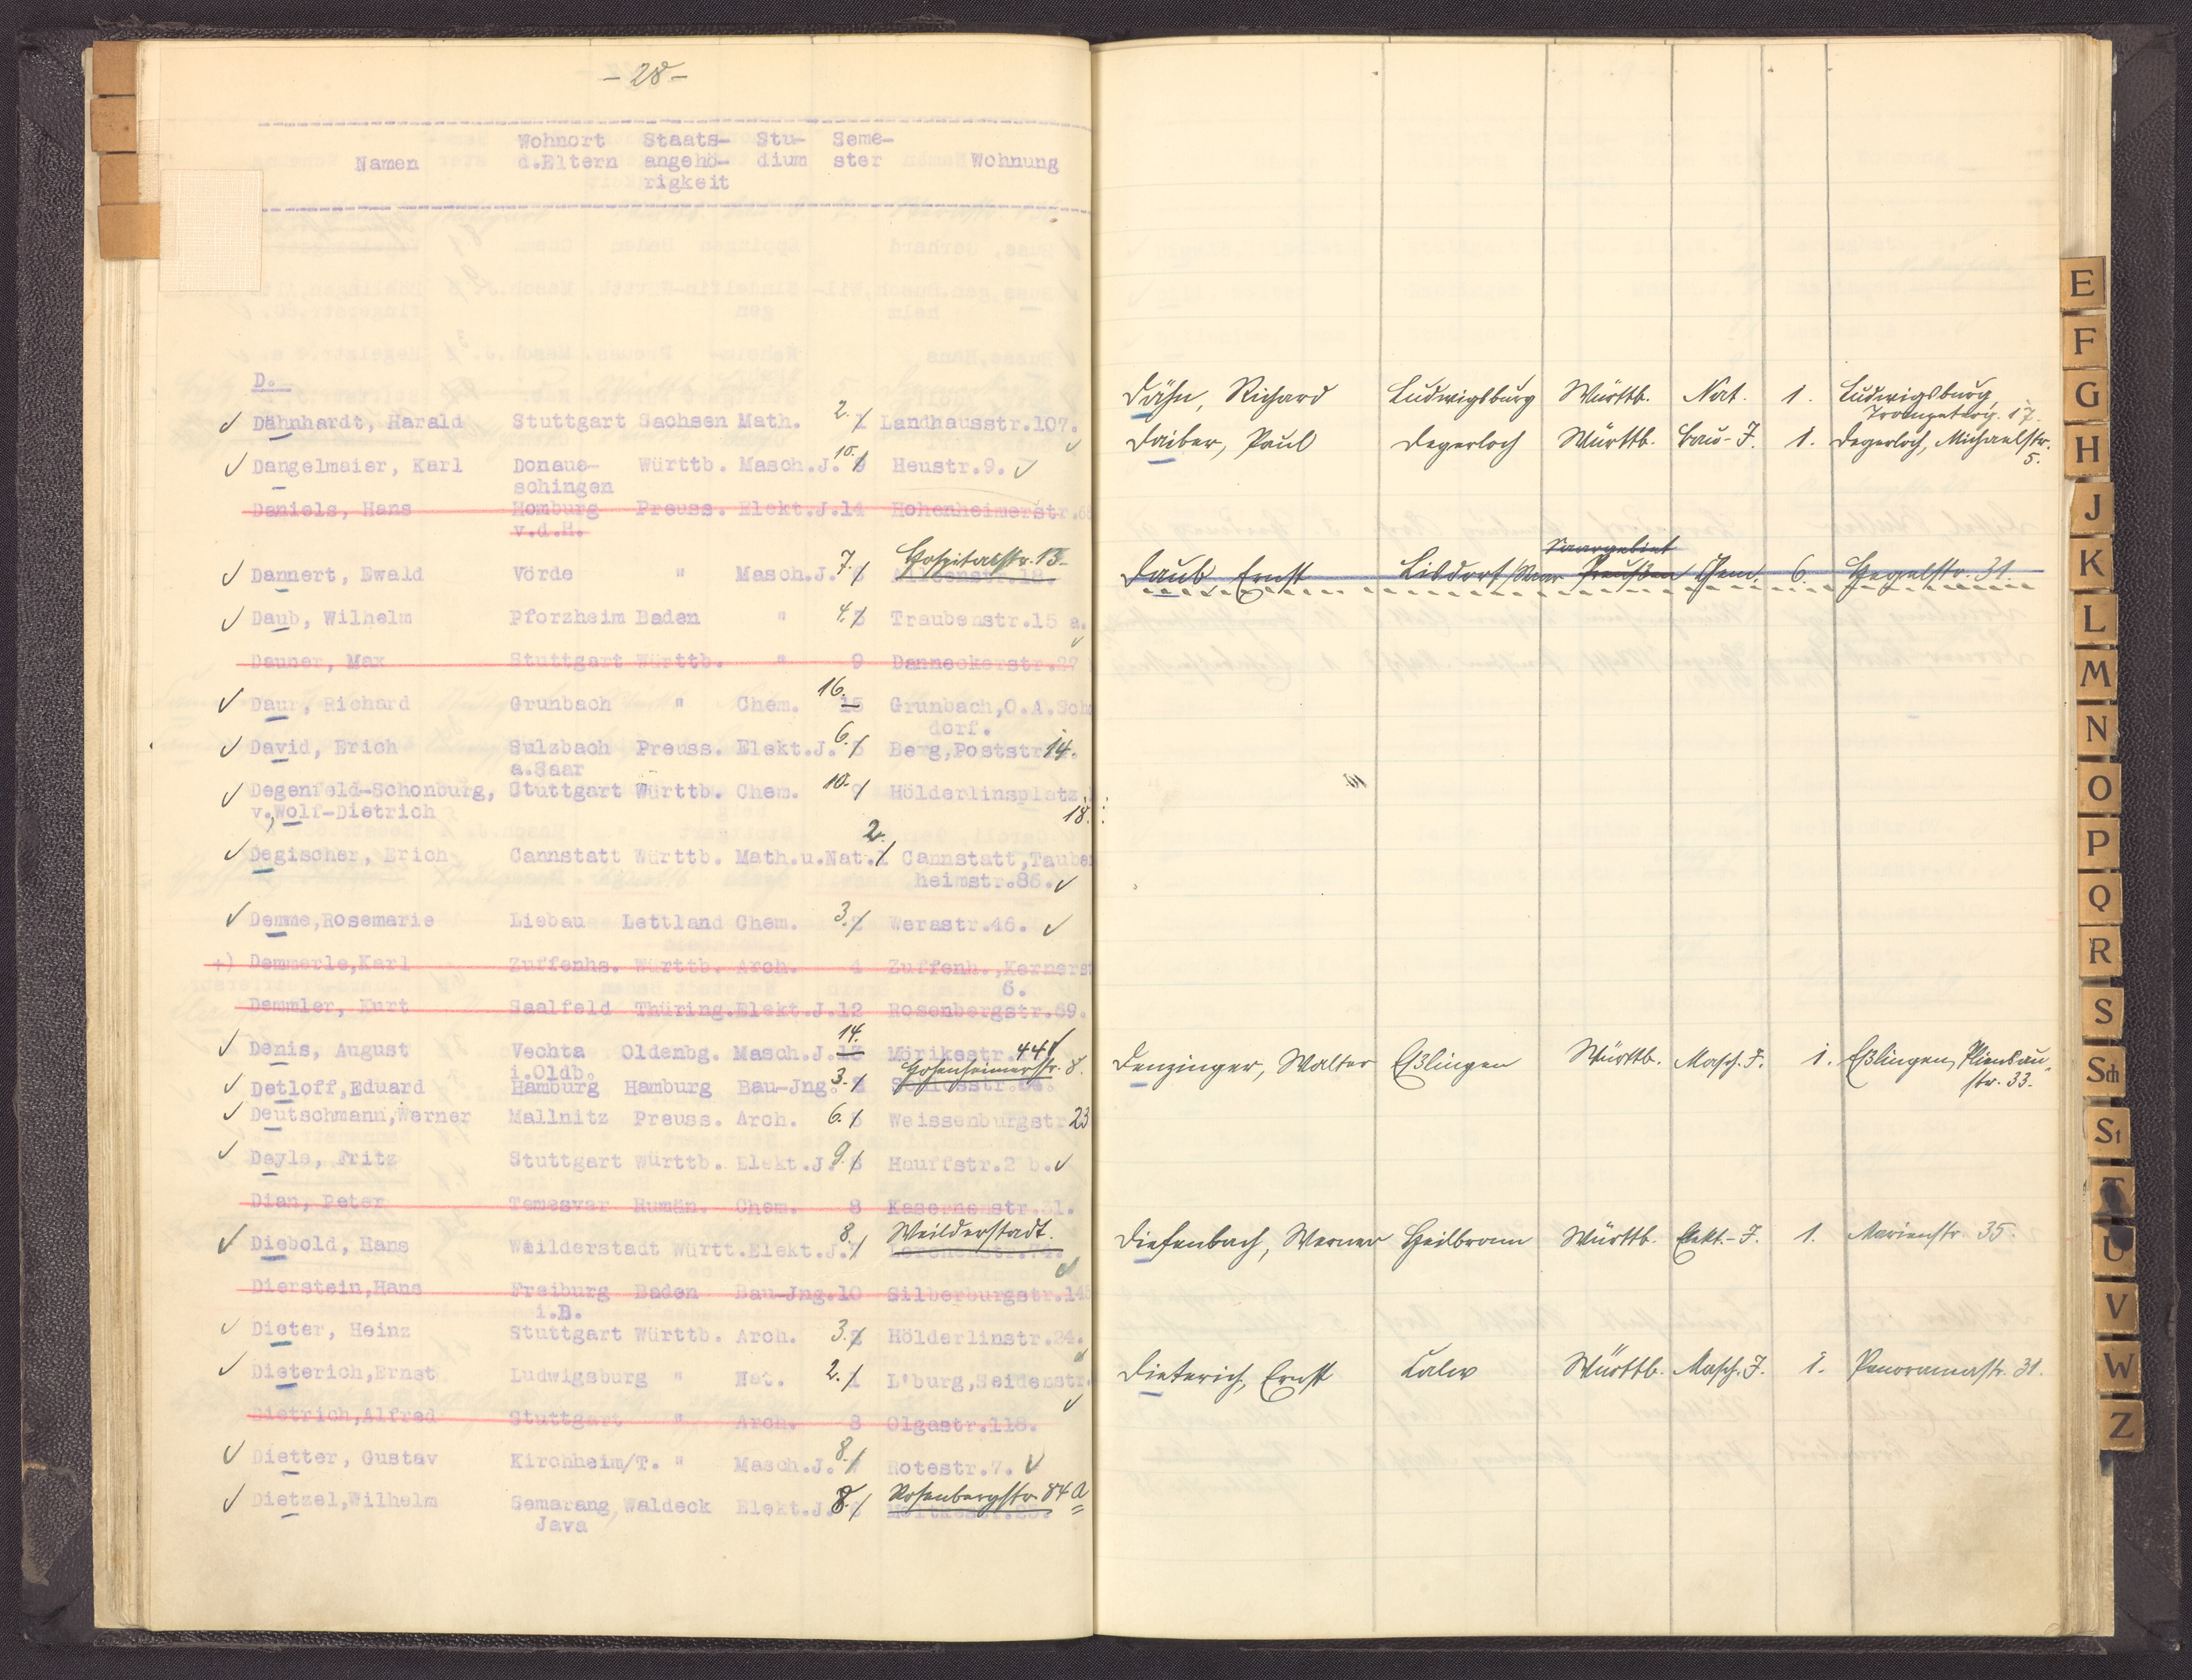 - 28 -
Namen Wohnort d.Eltern Staats-angehö-rigkeit Stu-dium Seme-ster Wohnung
D.
Dähnhardt, Harald Stuttgart Sachsen Math. 2. 1 Landhausstr.107.
Dangelmaier, Karl Donaue- Württb. Masch.J. 10. 9 Heustr.9.
schingen
Daniels, Hans Homburg Preuss. Elekt.J.14 Hohenheimerstr.
v.d.H.
Hospitalstr. 13
Dannert, Ewald Vörde " Masch.J. 7.
Daub, Wilhelm Pforzheim Baden " 4. 3 Traubenstr.15 a.
Dauner, Max Stuttgart Württb. " 9 Danneckerstr.
Daur, Richard Grunbach " Chem. 16. 15 Grunbach,O.A.Sch
dorf.
David, Erich Sulzbach Preuss. Elekt.J. 6. 5 Berg,Poststr 14.
a.Saar
Degenfeld-Schonburg, Stuttgart Württb. Chem. 10. 9 Hölderlinsplatz
v.,Wolf-Dietrich 18.
Degischer, Erich Cannstatt Württb. Math.u.Nat. 2. 1 Cannstatt,Tauben
heimstr.86.
Demme,Rosemarie Liebau Lettland Chem. 3. 2 Werastr.46.
+) Demmerle,Karl Zuffenhs. Württb. Arch. 4 Zuffenh.,Kernerst
6.
Demmler, Kurt Saalfeld Thüring.Elekt.J.12 Rosenbergstr.69.
Denis, August Vechta Oldenbg. Masch.J. 14. 13 Mörikestr. 44
i.Oldb. Hohenheimerstr. 8.
Detloff,Eduard Hamburg Hamburg Bau-Jng. 3.
Deutschmann,Werner Mallnitz Preuss. Arch. 6. 5 Weissenburgstr 23
Deyle, Fritz Stuttgart Württb. Elekt.J. 9. 8 Hauffstr.2 b.
Dian, Peter Temesvar Rumän. Chem. 8 Kasernenstr.31.
Weilderstadt.
Diebold, Hans Weilderstadt Württ.Elekt.J. 8. 7 Lerchenstr.74.
Dierstein,Hans Freiburg Baden Bau-Jng.10 Silberburgstr.14
i.B.
Dieter, Heinz Stuttgart Württb. Arch. 3. 2 Hölderlinstr.24.
Dieterich,Ernst Ludwigsburg " Nat. 2. 1 L'burg,Seidenstr.
Dietrich,Alfred Stuttgart " Arch. 8 Olgastr.118.
Dietter, Gustav Kirchheim/T. " Masch.J. 8. 7 Rotestr.7.
Rosenbergstr. 84 a
Dietzel,Wilhelm Semarang, Waldeck Elekt.J. 8. Moltkestr.
Java
Dähn, Richard Ludwigsburg Württb. Nat. 1. Ludwigsburg,
17.
Daiber, Paul Degerloch Württb. Bau-J. 1. Degerloch, Michaelstr.
5.
Saargebiet
Daub, Ernst Lisdorf/Saar Preußen Chem. 6. Hegelstr. 31.
Denzinger, Walter Eßlingen Württb. Masch.J. 1. Eßlingen, Pliensau-
str. 33.
Diefenbach, Werner Heilbronn Württb. Elekt.-J. 1. Marienstr. 35.
Dieterich, Ernst Calw Württb. Masch.J. 1. Panoramastr. 31.
E
F
G
H
J
K
L
M
N
O
P
Q
R
S
Sch
St
T
U
V
W
Z